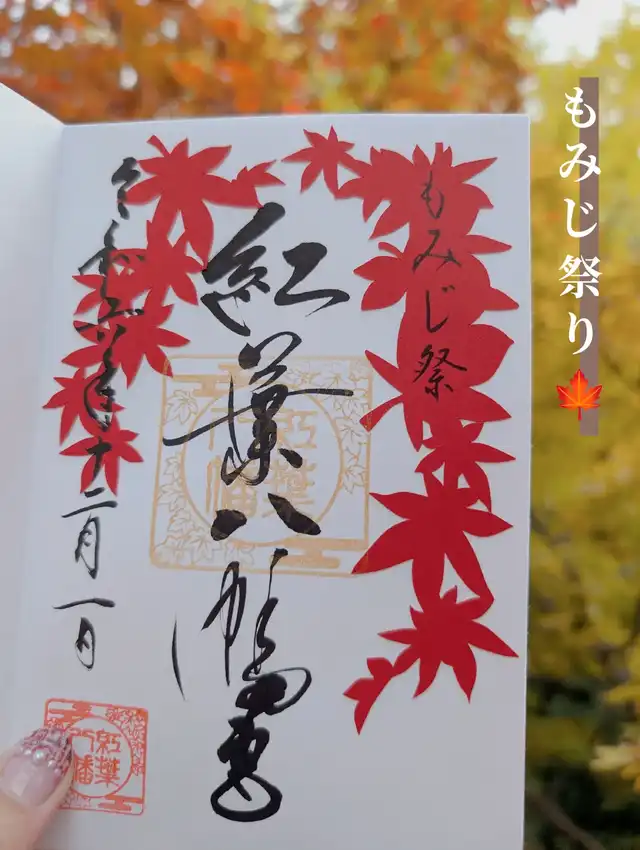 もみじ祭り🍁
もみじ祭
紅葉八幡宮
紅葉
八幡
令和年十二月一日
紅葉
八幡